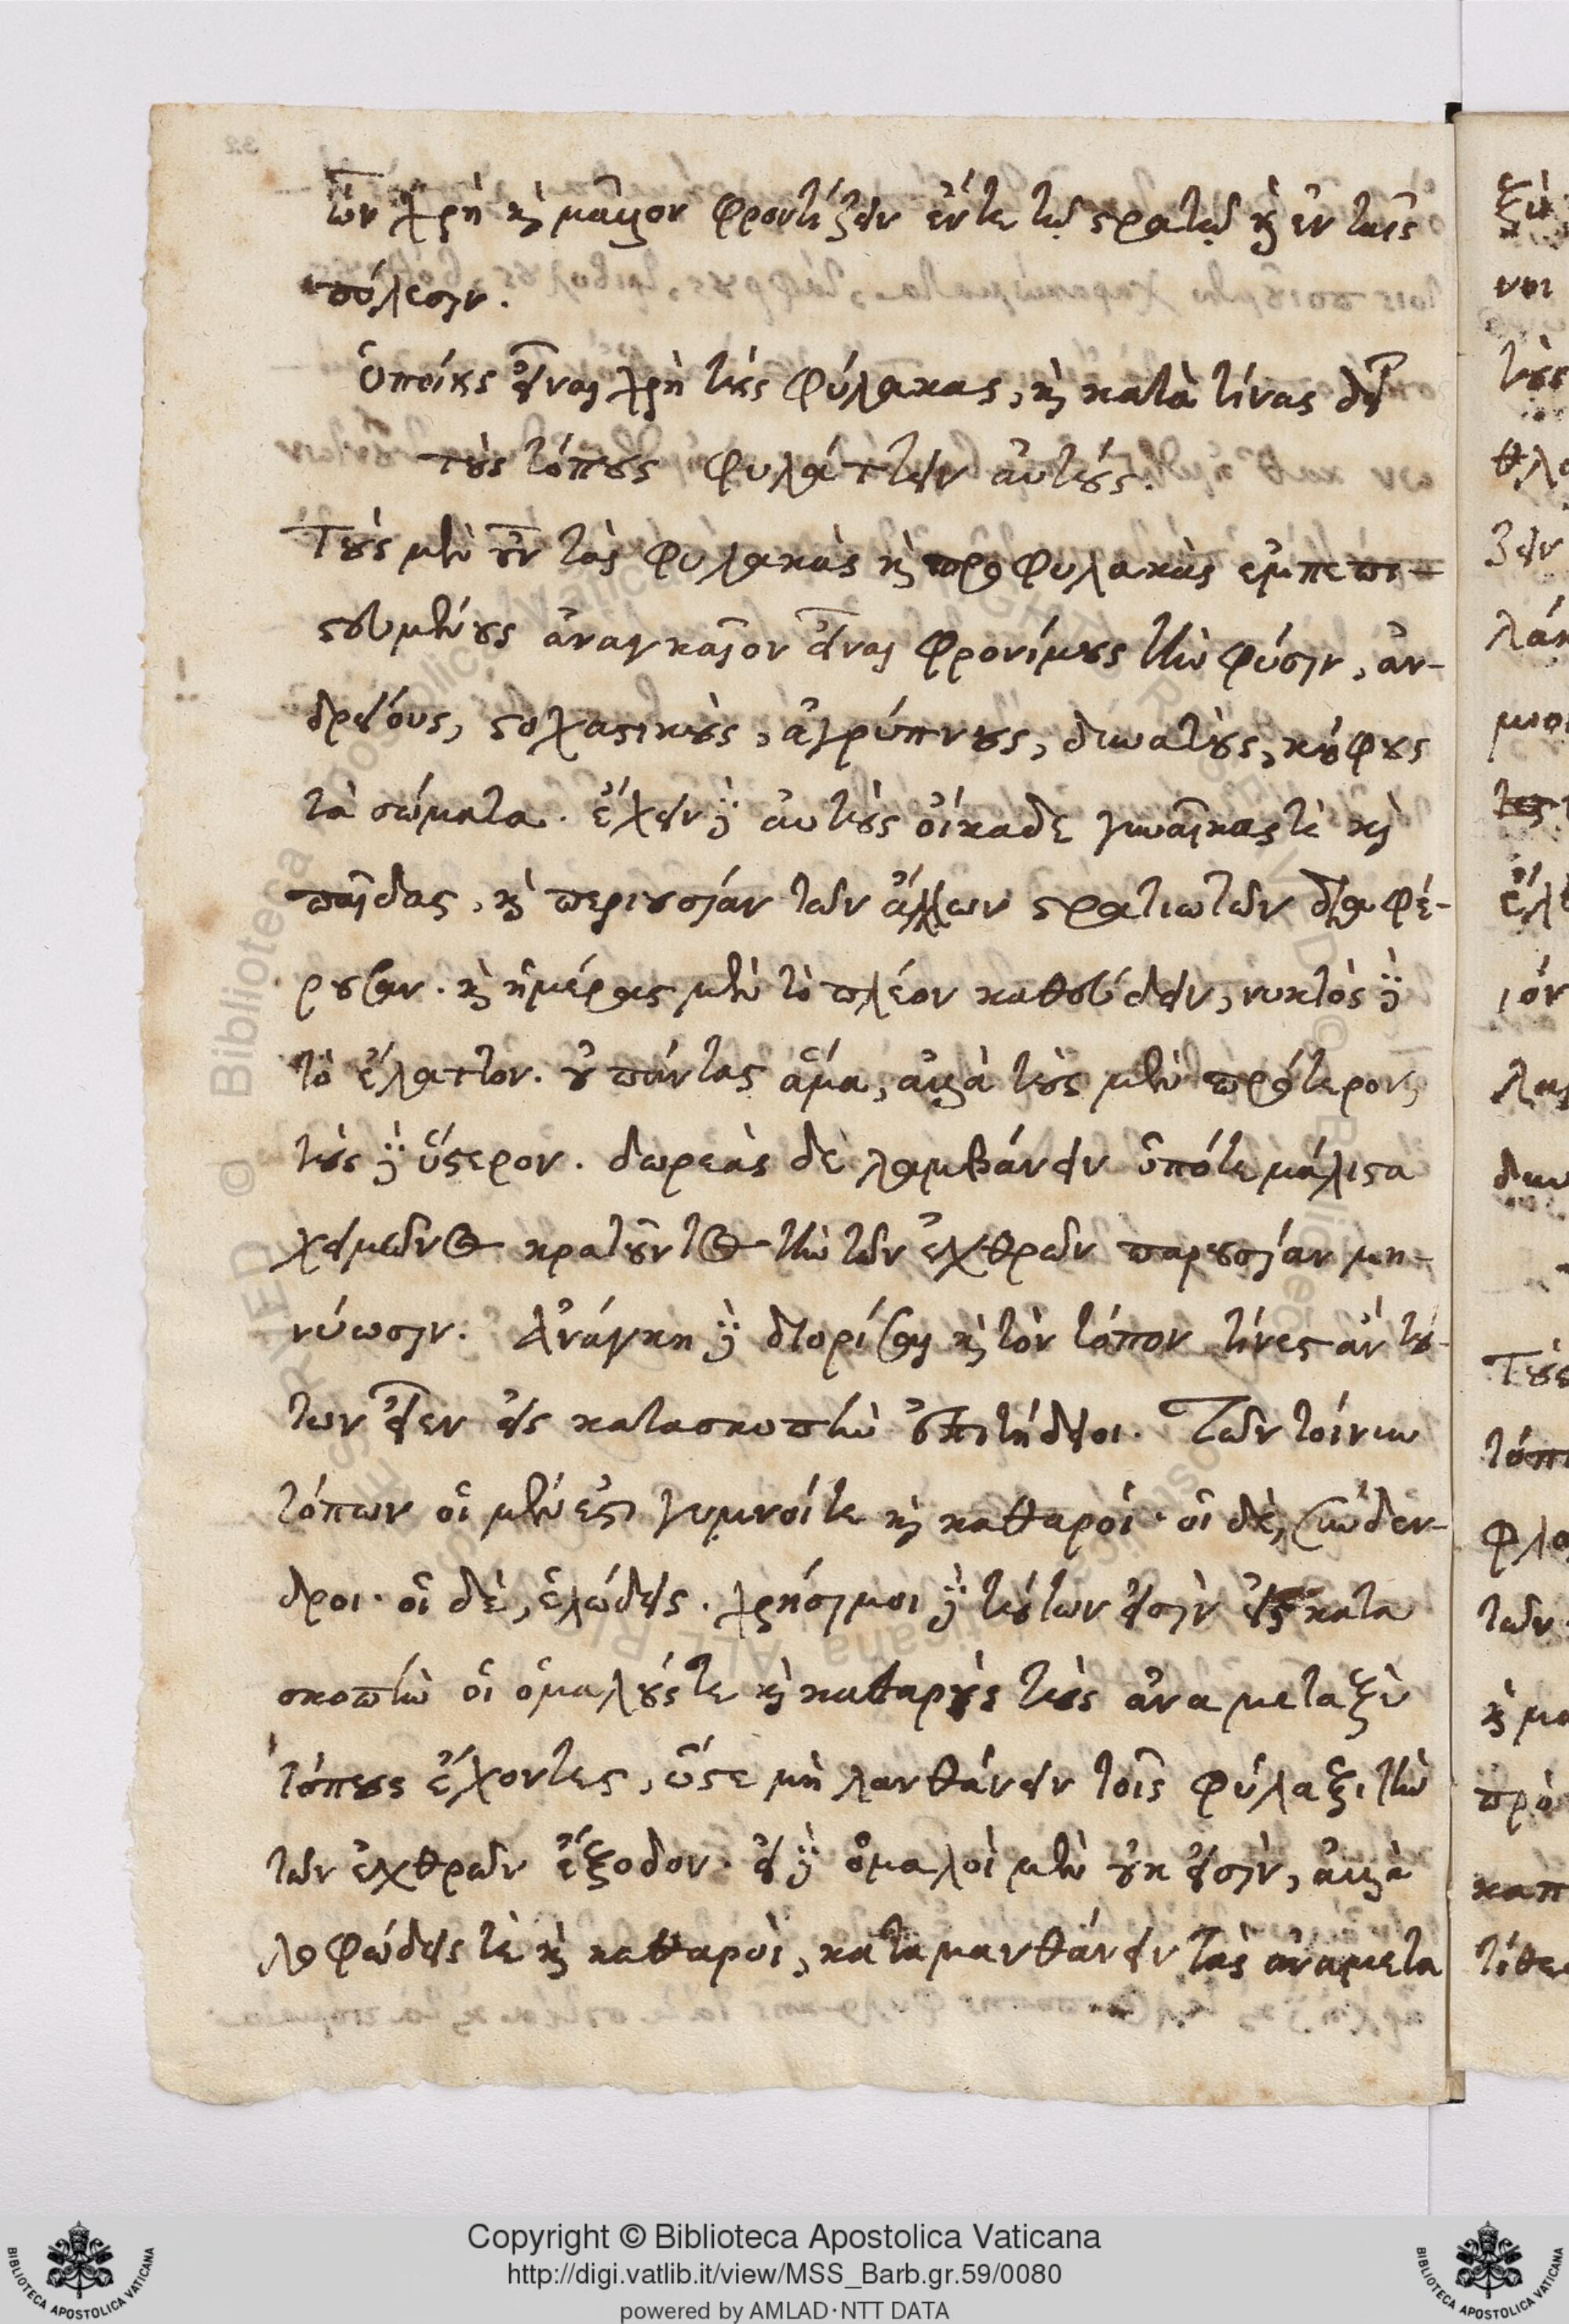 ὧν χρὴ καὶ μᾶλλον φροντίζειν ἔν τε τῷ στρατῷ καὶ ἐν ταῖς
πόλεσιν.
Ὁποίους εἶναι χρὴ τοὺς φύλακας, καὶ κατὰ τίνας δεῖ
τοὺς τόπους φυλάττειν αὐτούς.
Τοὺς μὲν οὖν τὰς φυλακὰς καὶ προφυλακὰς ἐμπεπι-
στευμένους ἀναγκαῖον εἶναι φρονίμους τὴν φύσιν, ἀν-
δρείους, στοχαστικοὺς, ἀγρύπνους, δυνατοὺς, κούφους
τὰ σώματα. ἔχειν δὲ αὐτοὺς οἴκαδε γυναῖκας τὲ καὶ
παῖδας, καὶ περιουσίαν τῶν ἄλλων στρατιωτῶν διαφέ-
ρουσαν. καὶ ἡμέρας μὲν τὸ πλέον καθεύδειν, νυκτὸς δὲ
τὸ ἔλαττον. οὐ πάντας ἅμα, ἀλλὰ τοὺς μὲν πρότερον,
τοὺς δὲ ὕστερον. δωρεὰς δὲ λαμβάνειν ὁπότε μάλιστα
χειμῶνος κρατοῦντος τὴν τῶν ἐχθρῶν παρουσίαν μη-
νύωσιν. Ἀνάγκη δὲ διορίσαι καὶ τὸν τόπον τίνες ἂν τού-
των εἶεν εἰς κατασκοπὴν ἐπιτήδειοι. Τῶν τοίνυν
τόπων οἱ μέν εἰσι γυμνοί τε καὶ καθαροί· οἱ δὲ, σύνδεν-
δροι· οἱ δὲ, ἑλώδεις. χρήσιμοι δὲ τούτων εἰσὶν εἰς κατα
σκοπὴν οἱ ὁμαλούς τε καὶ καθαροὺς τοὺς ἀναμεταξὺ
τόπους ἔχοντες, ὥστε μὴ λανθάνειν τοῖς φύλαξι τὴν
τῶν ἐχθρῶν ἔξοδον. εἰ δὲ ὁμαλοὶ μὲν οὐκ εἰσὶν, ἀλλὰ
λοφώδεις τὲ καὶ καθαροὶ, καταμανθάνειν τὰς ἀναμετα
Copyright © Biblioteca Apostolica Vaticana
http://digi.vatlib.it/view/MSS_Barb.gr.59/0080
powered by AMLAD·NTT DATA
BIBLIOTECA APOSTOLICA VATICANA
BIBLIOTECA APOSTOLICA VATICANA